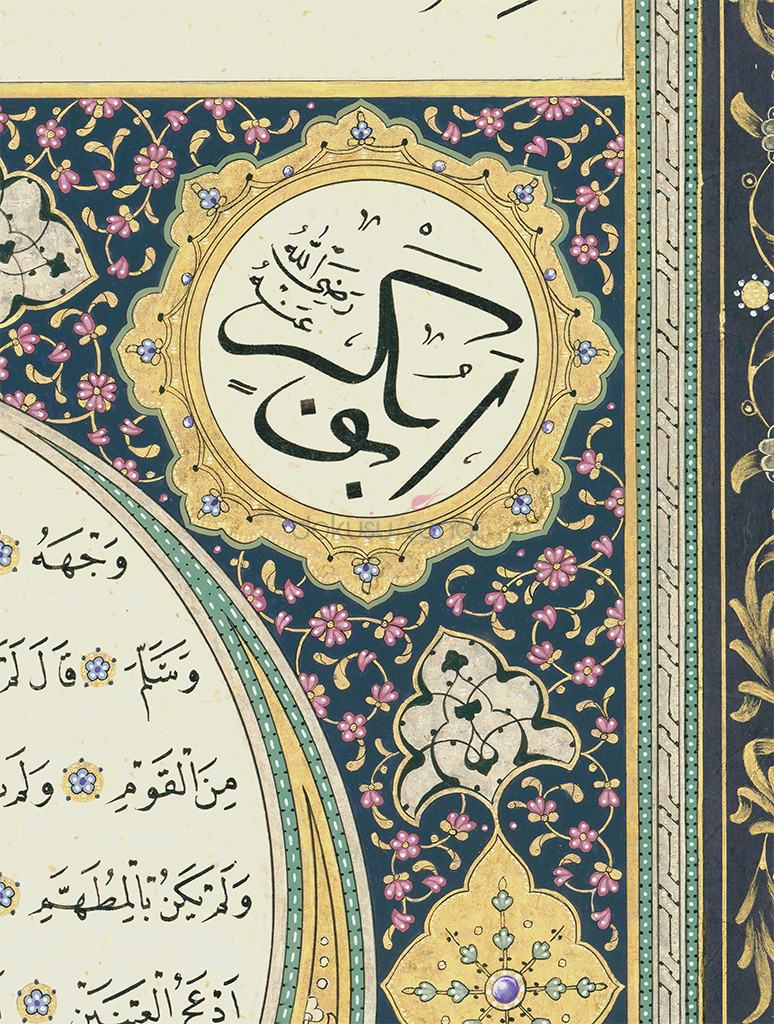 ابو بكرٍ رَضِىَ اللّٰه عَنْهُ
dokusu
وَجْهَهُ
وَسَلَّمَ قَالَ لَمْ
مِنَ الْقَوْمِ وَلَمْ
وَلَمْ يَكُنْ بِالْمُطَهَّمِ
اَدْعَجُ الْعَيْنَيْنِ